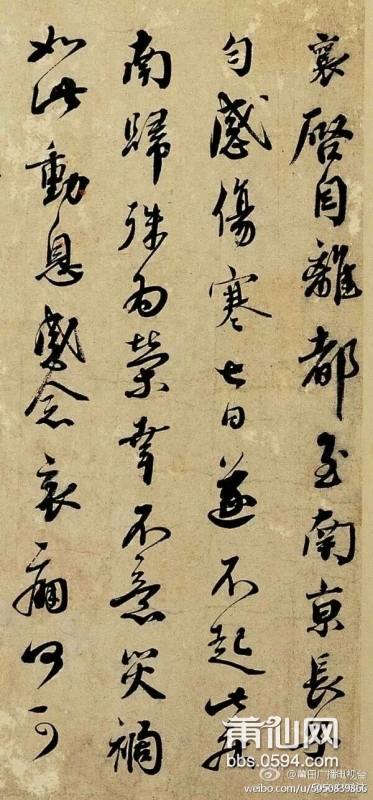 襄啓自離都至南京長子
匀感傷寒七日遂不起此
南歸殊為榮幸不意災禍
如此動息感念哀痛何可
莆仙网
bbs.0594.com
@莆田广播电视台
weibo.com/u/5050839866